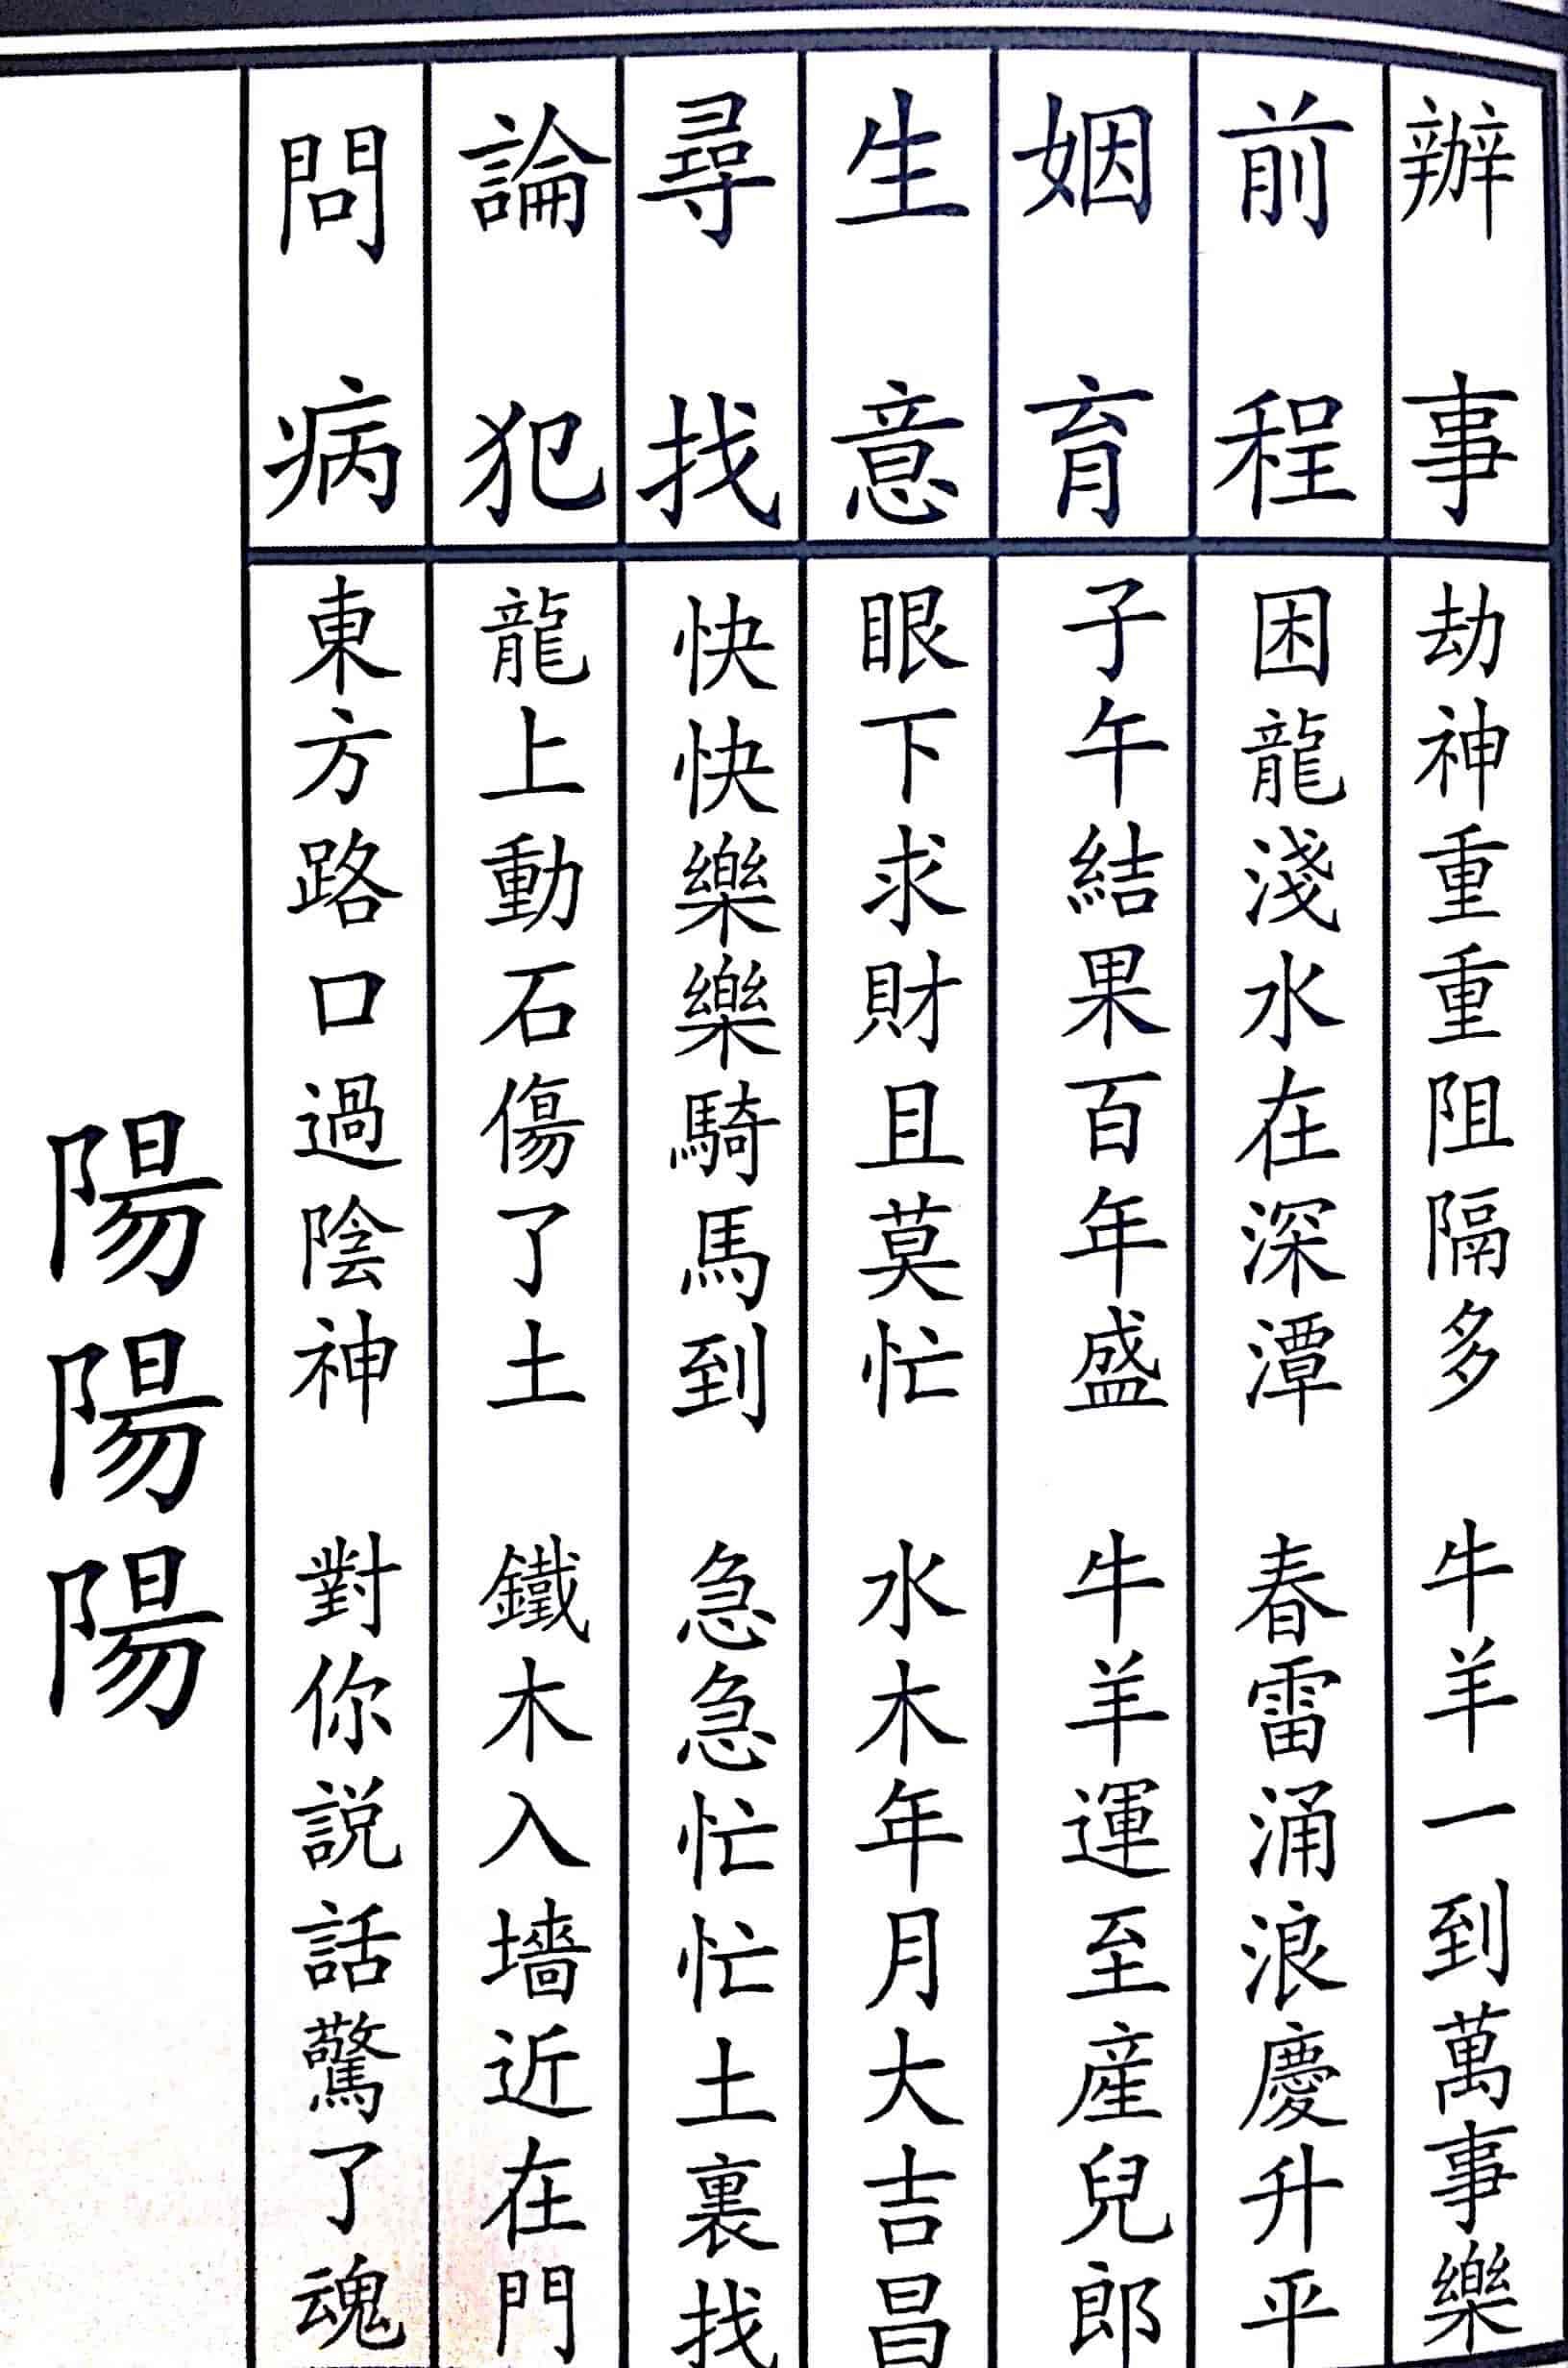 辦事 劫神重重阻隔多 牛羊一到萬事樂
前程 困龍淺水在深潭 春雷涌浪慶升平
姻育 子午結果百年盛 牛羊運至産兒郎
生意 眼下求財且莫忙 水木年月大吉昌
尋找 快快樂樂騎馬到 急急忙忙土裏找
論犯 龍上動石傷了土 鐵木入墻近在門
問病 東方路口過陰神 對你説話驚了魂
陽陽陽